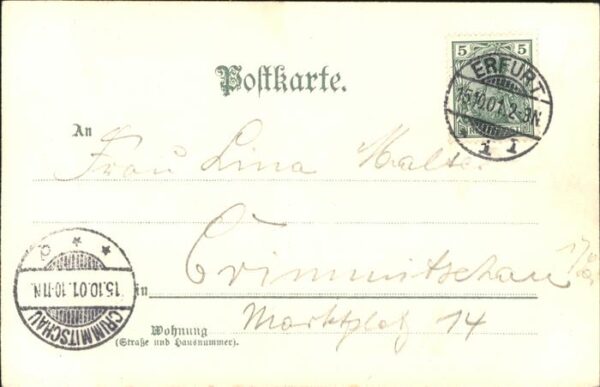 Postkarte.
5 5
ERFURT
15.10.01.2-3N.
* 1 1
An
Frau Lina
Crimmitschau
in
Marktplatz 14
Wohnung
(Straße und Hausnummer).
15.10.01.10-11N.
CRIMMITSCHAU